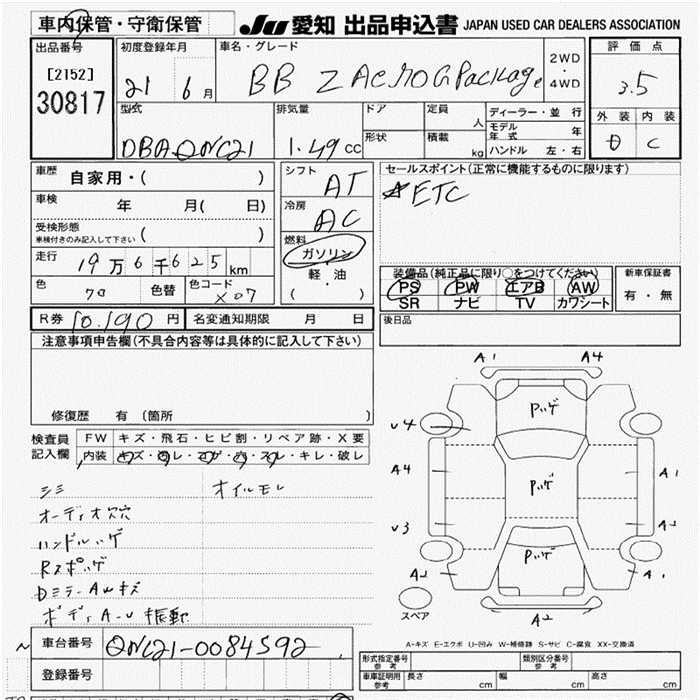 車内保管・守衛保管
JU 愛知 出品申込書 JAPAN USED CAR DEALERS ASSOCIATION
出品番号
[2152]
30817
初度登録年月
21 6月
車名・グレード
BB Z AEROGPackage
2WD
・
4WD
評価点
3.5
外装 内装
D C
型式
DBAQNC21
排気量
1.49cc
ドア
形状
定員
人
積載
kg
ディーラー・並行
モデル年式 年
ハンドル 左・右
車歴
自家用・( )
車検 年 月( 日)
受検形態
車検付きのみ記入して下さい ( )
走行
19万6千625km
色 色替 色コード
X07
シフト
AT
冷房
AC
燃料
ガソリン
軽・油
( ・ )
セールスポイント(正常に機能するものに限ります)
☆ETC
装備品(純正品に限り○をつけてください)
PS PW エアB AW
SR ナビ TV カワシート
新車保証書
有・無
後日品
R券 10.190円 名変通知期限 月 日
注意事項申告欄(不具合内容等は具体的に記入して下さい)
修復歴 有(箇所 )
検査員記入欄
FW キズ・飛石・ヒビ割・リペア跡・X要
内装
キレ・破レ
シミ オイルモレ
オーディオ穴
ハンドルハゲ
Rスポハゲ
DミラーAUキズ
ボディA-U 振動
A1 A4
U4
A4
U3
A2
A1
A2
A1
A2
Pハゲ
Pハゲ
Pハゲ
スペア
A-キズ E-エクボ U-凹み W-補修跡 S-サビ C-腐食 XX-交換済
車台番号 QNC21-0084592
登録番号
形式指定番号 参考
類別区分番号 参考
車庫証明用 参考 長さ cm 幅 cm 高さ cm